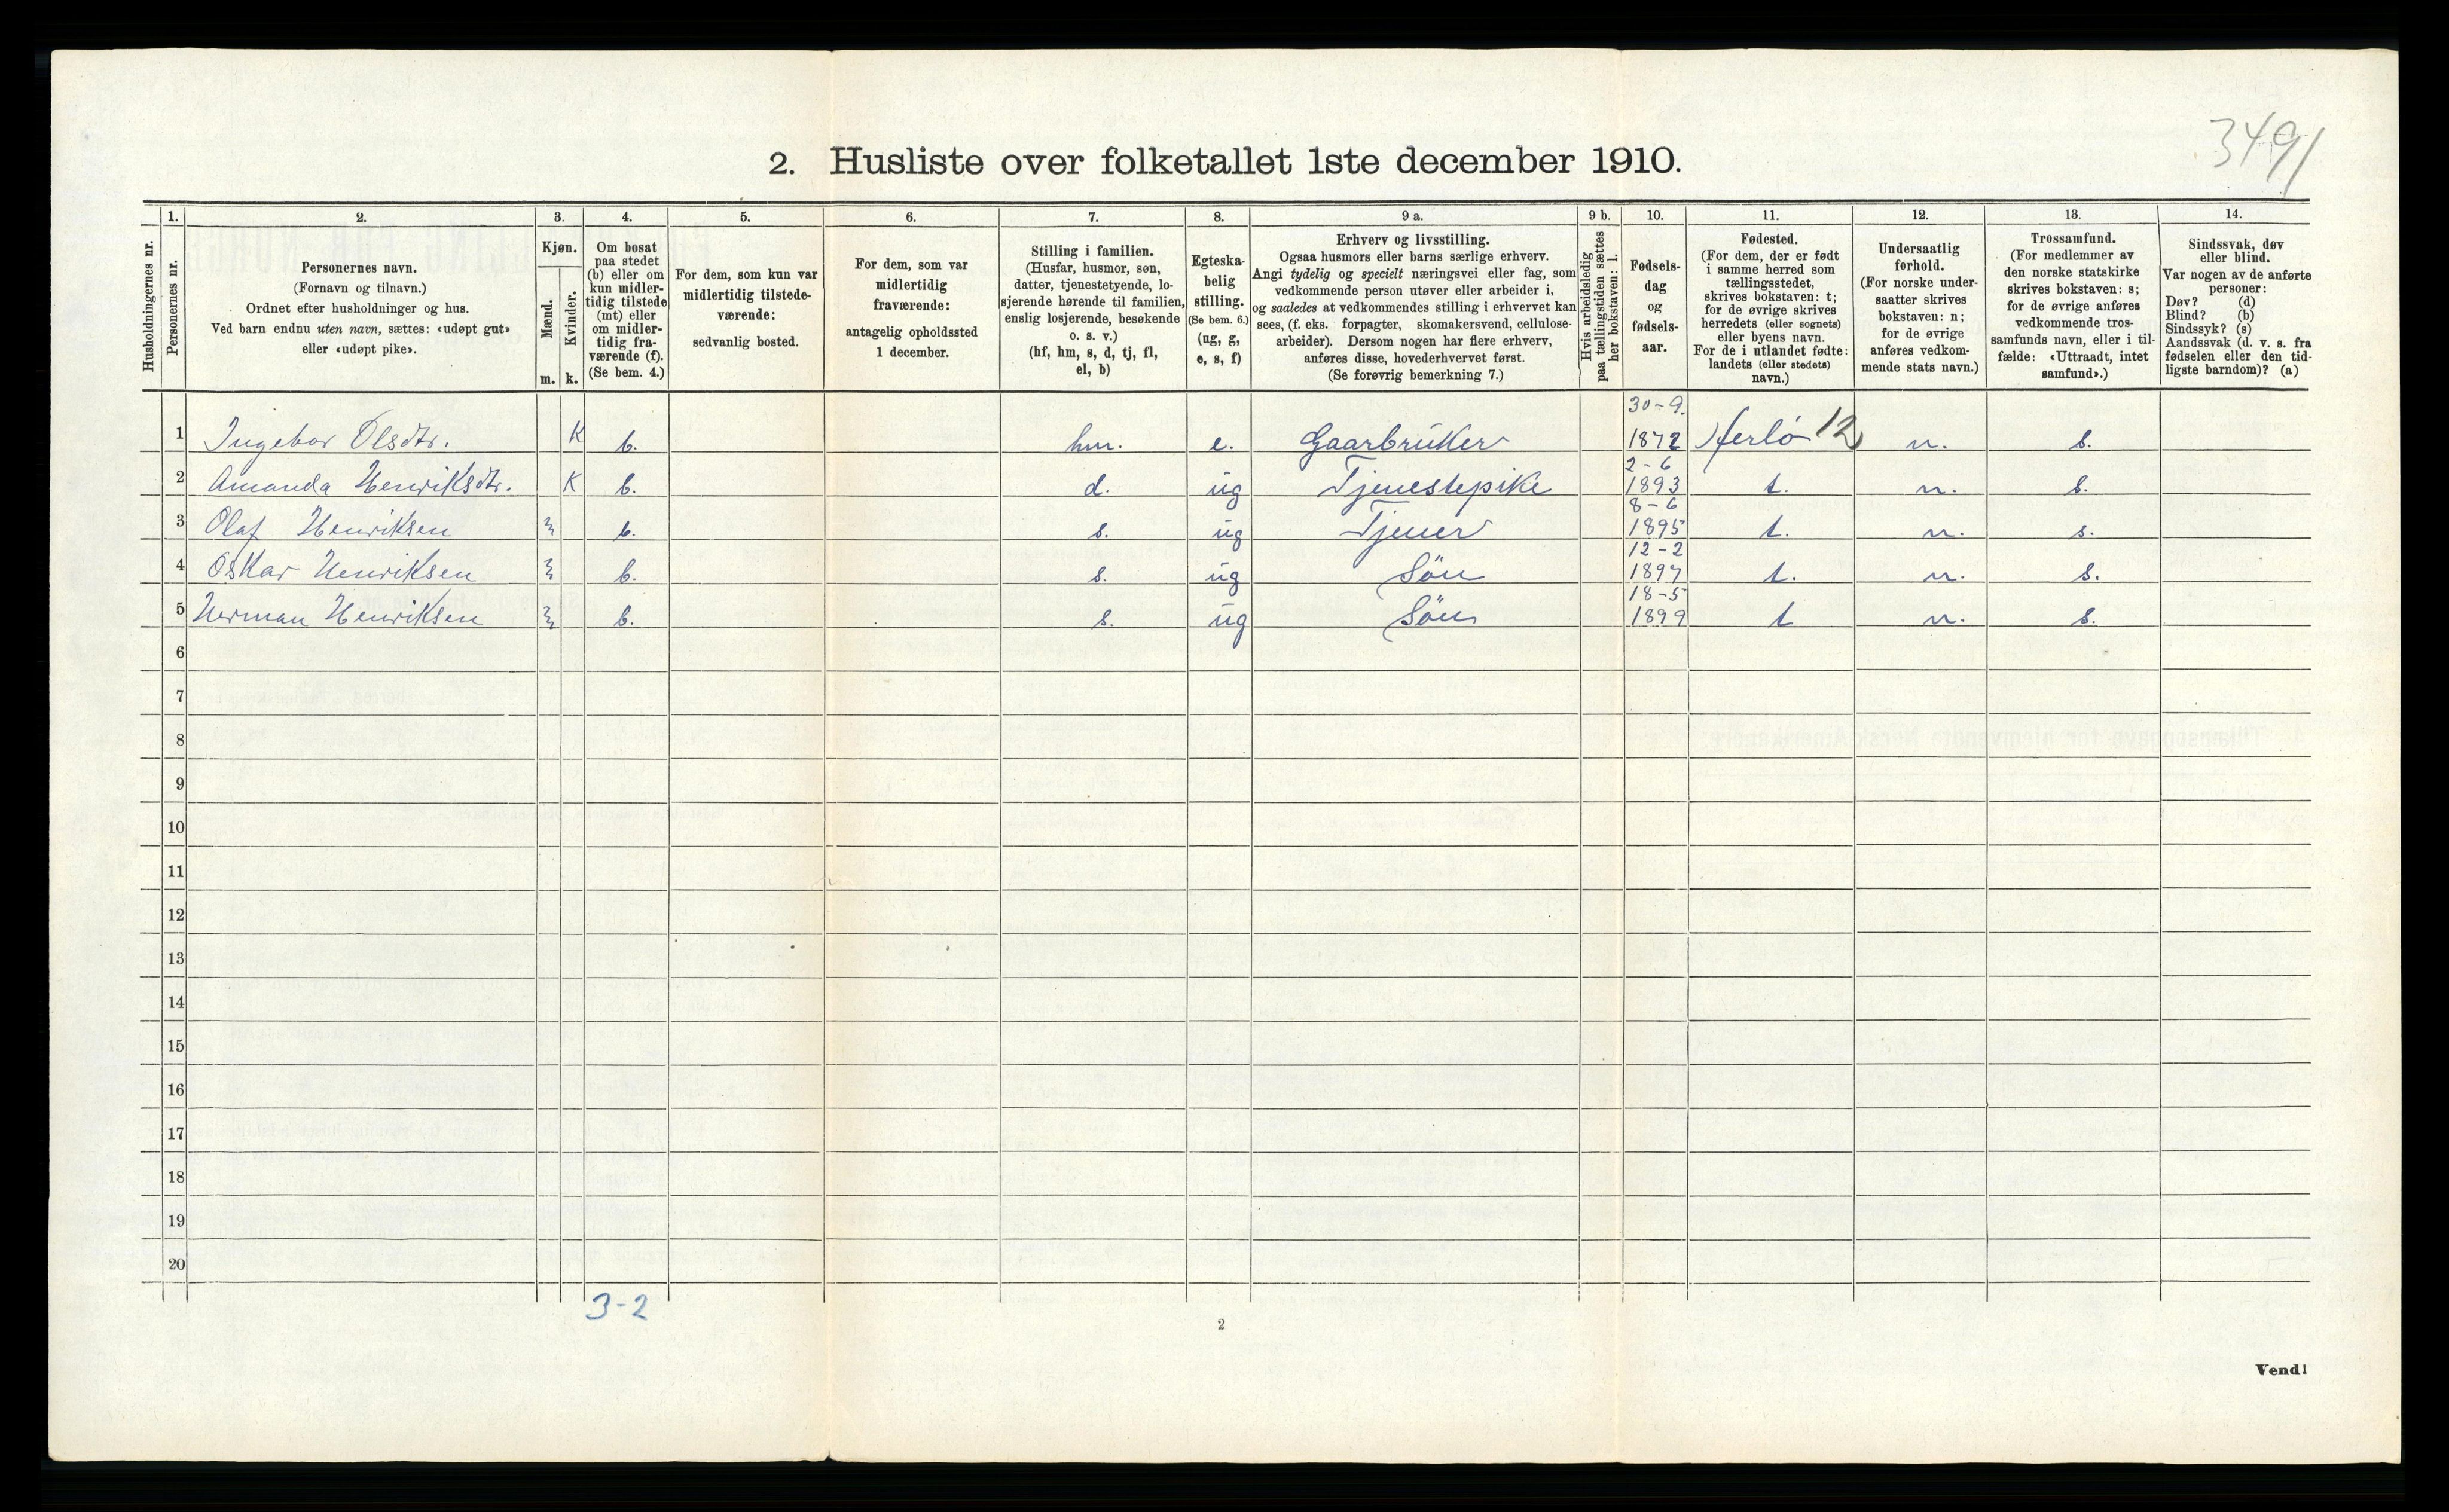 3491
2. Husliste over folketallet 1ste december 1910.
Husholdningernes nr.
1.
Personernes nr.
2.
Personernes navn.
(Fornavn og tilnavn.)
Ordnet efter husholdninger og hus.
Ved barn endnu uten navn, sættes: «udøpt gut»
eller «udøpt pike».
3.
Kjøn.
Mænd.
m.
Kvinder.
k.
4.
Om bosat
paa stedet
(b) eller om
kun midler-
tidig tilstede
(mt) eller
om midler-
tidig fra-
værende (f).
(Se bem. 4.)
5.
For dem, som kun var
midlertidig tilstede-
værende:
sedvanlig bosted.
6.
For dem, som var
midlertidig
fraværende:
antagelig opholdssted
1 december.
7.
Stilling i familien.
(Husfar, husmor, søn,
datter, tjenestetyende, lo-
sjerende hørende til familien,
enslig losjerende, besøkende
o. s. v.)
(hf, hm, s, d, tj, fl,
el, b)
8.
Egteska-
belig
stilling.
(Se bem. 6.)
(ug, g,
e, s, f)
9 a.
Erhverv og livsstilling.
Ogsaa husmors eller barns særlige erhverv.
Angi tydelig og specielt næringsvei eller fag, som
vedkommende person utøver eller arbeider i,
og saaledes at vedkommendes stilling i erhvervet kan
sees, (f. eks. forpagter, skomakersvend, cellulose-
arbeider). Dersom nogen har flere erhverv,
anføres disse, hovederhvervet først.
(Se forøvrig bemerkning 7.)
9 b.
Hvis arbeidsledig
paa tællingstiden sættes
her bokstaven: l.
10.
Fødsels-
dag
og
fødsels-
aar.
11.
Fødested.
(For dem, der er født
i samme herred som
tællingsstedet,
skrives bokstaven: t;
for de øvrige skrives
herredets (eller sognets)
eller byens navn.
For de i utlandet fødte:
landets (eller stedets)
navn.)
12.
Undersaatlig
forhold.
(For norske under-
saatter skrives
bokstaven: n;
for de øvrige
anføres vedkom-
mende stats navn.)
13.
Trossamfund.
(For medlemmer av
den norske statskirke
skrives bokstaven: s;
for de øvrige anføres
vedkommende tros-
samfunds navn, eller i til-
fælde: «Uttraadt, intet
samfund».)
14.
Sindssvak, døv
eller blind.
Var nogen av de anførte
personer:
Døv? (d)
Blind? (b)
Sindssyk? (s)
Aandssvak (d. v. s. fra
fødselen eller den tid-
ligste barndom)? (a)
1 Ingebor Olsdtr. K b. hm. e. Gaarbrüker 30-9. 1872 Herlö 12 n. s.
2 Amanda Henriksdtr. K b. d. üg Tjenestepike 2-6 1893 t. n. s.
3 Olaf Henriksen m b. s. üg Tjener 8-6 1895 t. n. s.
4 Oskar Henriksen m b. s. üg Sön 12-2 1897 t. n. s.
5 Herman Henriksen m b. s. üg Sön 18-5 1899 t n. s.
6
7
8
9
10
11
12
13
14
15
16
17
18
19
20
3-2
2
Vend!